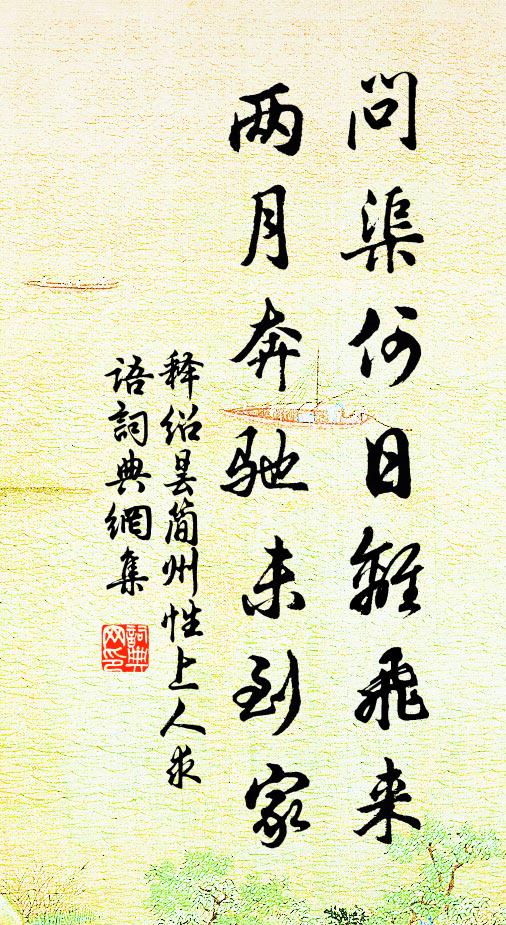 问渠何日离飞来
两月奔驰未到家
释绍昙简州性上人求
语词典網集
詞典
网印